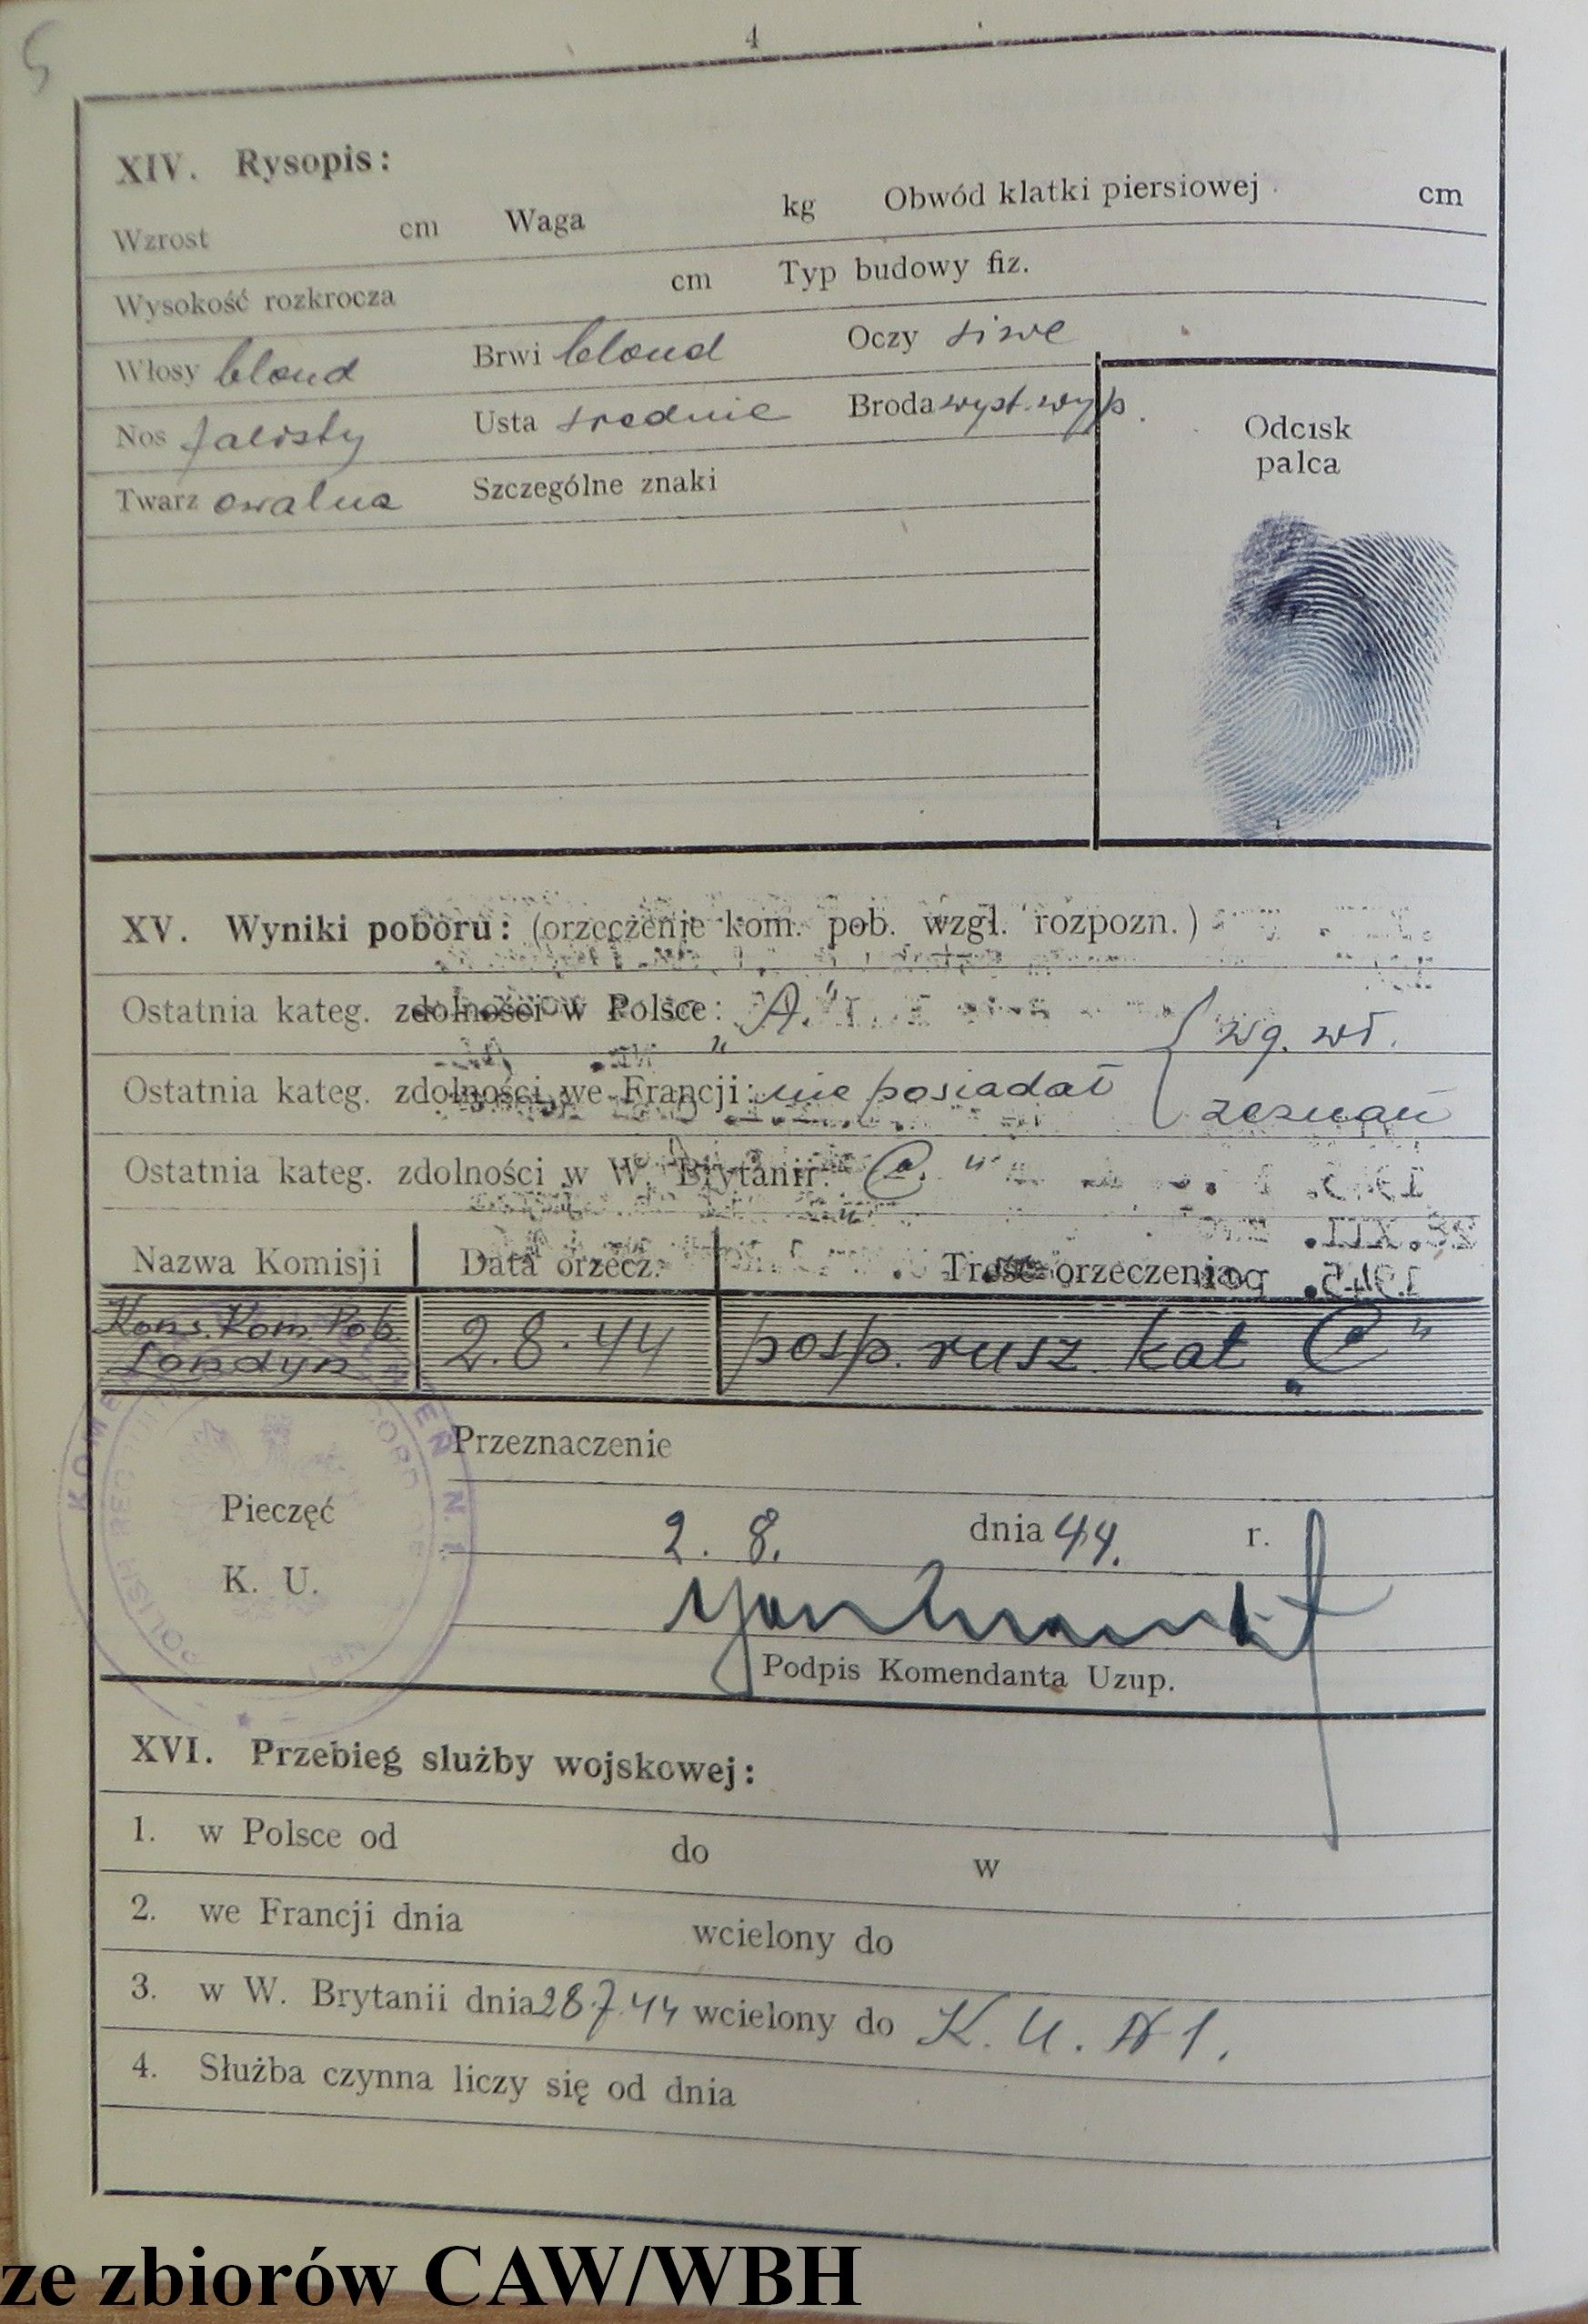 5
4
XIV. Rysopis:
Wzrost cm Waga kg Obwód klatki piersiowej cm
Wysokość rozkrocza cm Typ budowy fiz.
Włosy blond Brwi blond Oczy siwe
Nos falisty Usta średnie Broda wyst. wyp.
Twarz owalna Szczególne znaki
Odcisk
palca
XV. Wyniki poboru: (orzeczenie kom. pob. wzgl. rozpozn.)
Ostatnia kateg. zdolności w Polsce: „A." wg. wł.
Ostatnia kateg. zdolności we Francji: nie posiadał zeznań
Ostatnia kateg. zdolności w W. Brytanii: „C."
Nazwa Komisji Data orzecz. Treść orzeczenia
Kons. Kom. Pob. Londyn 2.8.44 posp. rusz kat „C"
Przeznaczenie
Pieczęć 2. 8. dnia 44. r.
K. U.
Podpis Komendanta Uzup.
XVI. Przebieg służby wojskowej:
1. w Polsce od do w
2. we Francji dnia wcielony do
3. w W. Brytanii dnia 28.7.44 wcielony do K. U. N 1.
4. Służba czynna liczy się od dnia
ze zbiorów CAW/WBH